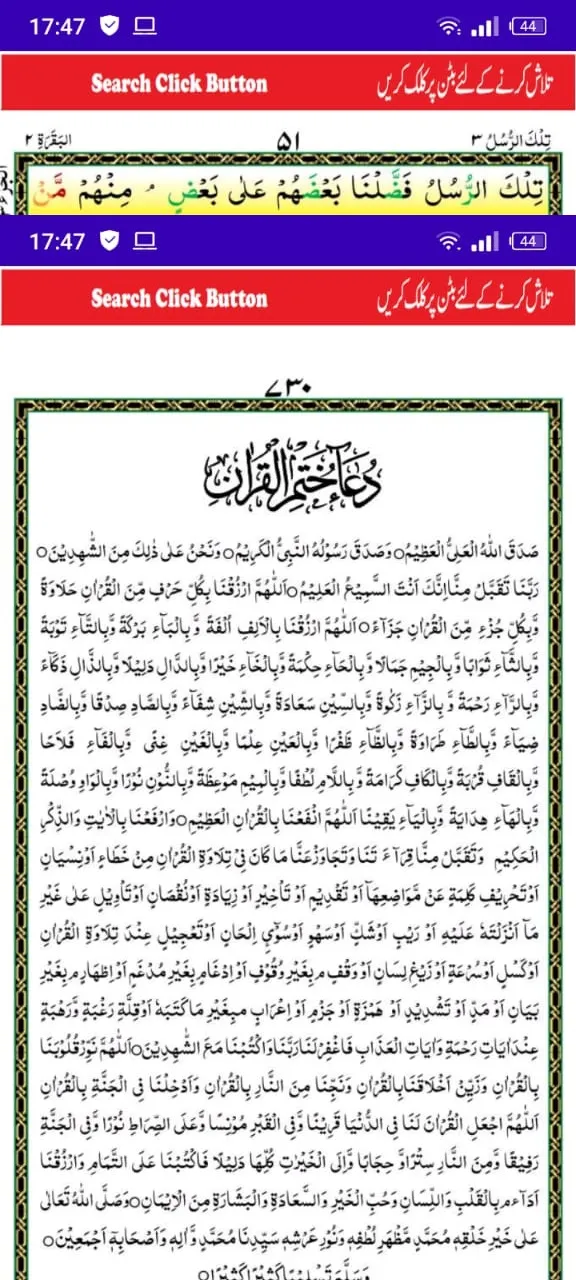 17:47 44
Search Click Button تلاش کرنے کے لئے بٹن پر کلک کریں
تِلْكَ الرُّسُلُ ٣ ٥١ البَقَرَة ٢
تِلْكَ الرُّسُلُ فَضَّلْنَا بَعْضَهُمْ عَلٰى بَعْضٍ ۘ مِنْهُمْ مَّنْ
17:47 44
Search Click Button تلاش کرنے کے لئے بٹن پر کلک کریں
٧٣٠
دُعَآءُ خَتْمِ الْقُرْاٰنِ
صَدَقَ اللّٰهُ الْعَلِىُّ الْعَظِيْمُ○وَصَدَقَ رَسُوْلُهُ النَّبِىُّ الْكَرِيْمُ○وَنَحْنُ عَلٰى ذٰلِكَ مِنَ الشّٰهِدِيْنَ○
رَبَّنَا تَقَبَّلْ مِنَّا اِنَّكَ اَنْتَ السَّمِيْعُ الْعَلِيْمُ○اَللّٰهُمَّ ارْزُقْنَا بِكُلِّ حَرْفٍ مِّنَ الْقُرْاٰنِ حَلَاوَةً
وَّبِكُلِّ جُزْءٍ مِّنَ الْقُرْاٰنِ جَزَآءً○اَللّٰهُمَّ ارْزُقْنَا بِالْاَلِفِ اُلْفَةً وَّبِالْبَآءِ بَرَكَةً وَّبِالتَّآءِ تَوْبَةً
وَّبِالثَّآءِ ثَوَابًا وَّبِالْجِيْمِ جَمَالًا وَّبِالْحَآءِ حِكْمَةً وَّبِالْخَآءِ خَيْرًا وَّبِالدَّالِ دَلِيْلًا وَّبِالذَّالِ ذَكَآءً
وَّبِالرَّآءِ رَحْمَةً وَّبِالزَّآءِ زَكٰوةً وَّبِالسِّيْنِ سَعَادَةً وَّبِالشِّيْنِ شِفَآءً وَّبِالصَّادِ صِدْقًا وَّبِالضَّادِ
ضِيَآءً وَّبِالطَّآءِ طَرَاوَةً وَّبِالظَّآءِ ظَفْرًا وَّبِالْعَيْنِ عِلْمًا وَّبِالْغَيْنِ غِنًى وَّبِالْفَآءِ فَلَاحًا
وَّبِالْقَافِ قُرْبَةً وَّبِالْكَافِ كَرَامَةً وَّبِاللَّامِ لُطْفًا وَّبِالْمِيْمِ مَوْعِظَةً وَّبِالنُّوْنِ نُوْرًا وَّبِالْوَاوِ وُصْلَةً
وَّبِالْهَآءِ هِدَايَةً وَّبِالْيَآءِ يَقِيْنًا اَللّٰهُمَّ انْفَعْنَا بِالْقُرْاٰنِ الْعَظِيْمِ○وَارْفَعْنَا بِالْاٰيٰتِ وَالذِّكْرِ
الْحَكِيْمِ وَتَقَبَّلْ مِنَّا قِرَآءَتَنَا وَتَجَاوَزْ عَنَّا مَا كَانَ فِىْ تِلَاوَةِ الْقُرْاٰنِ مِنْ خَطَاءٍ اَوْ نِسْيَانٍ
اَوْ تَحْرِيْفِ كَلِمَةٍ عَنْ مَّوَاضِعِهَآ اَوْ تَقْدِيْمٍ اَوْ تَاْخِيْرٍ اَوْ زِيَادَةٍ اَوْ نُقْصَانٍ اَوْ تَاْوِيْلٍ عَلٰى غَيْرِ
مَآ اَنْزَلْتَهٗ عَلَيْهِ اَوْ رَيْبٍ اَوْ شَكٍّ اَوْ سَهْوٍ اَوْ سُوْٓءِ اِلْحَانٍ اَوْ تَعْجِيْلٍ عِنْدَ تِلَاوَةِ الْقُرْاٰنِ
اَوْ كَسْلٍ اَوْ سُرْعَةٍ اَوْ زَيْغِ لِسَانٍ اَوْ وَقْفٍ ۢبِغَيْرِ وُقُوْفٍ اَوْ اِدْغَامٍ بِغَيْرِ مُدْغَمٍ اَوْ اِظْهَارٍ ۢبِغَيْرِ
بَيَانٍ اَوْ مَدٍّ اَوْ تَشْدِيْدٍ اَوْ هَمْزَةٍ اَوْ جَزْمٍ اَوْ اِعْرَابٍ ۢبِغَيْرِ مَا كَتَبَهٗ اَوْ قِلَّةِ رَغْبَةٍ وَّرَهْبَةٍ
عِنْدَ اٰيَاتِ رَحْمَةٍ وَّاٰيَاتِ الْعَذَابِ فَاغْفِرْ لَنَا رَبَّنَا وَاكْتُبْنَا مَعَ الشّٰهِدِيْنَ○اَللّٰهُمَّ نَوِّرْ قُلُوْبَنَا
بِالْقُرْاٰنِ وَزَيِّنْ اَخْلَاقَنَا بِالْقُرْاٰنِ وَنَجِّنَا مِنَ النَّارِ بِالْقُرْاٰنِ وَاَدْخِلْنَا فِى الْجَنَّةِ بِالْقُرْاٰنِ
اَللّٰهُمَّ اجْعَلِ الْقُرْاٰنَ لَنَا فِى الدُّنْيَا قَرِيْنًا وَّفِى الْقَبْرِ مُوْنِسًا وَّعَلَى الصِّرَاطِ نُوْرًا وَّفِى الْجَنَّةِ
رَفِيْقًا وَّمِنَ النَّارِ سِتْرًا وَّحِجَابًا وَّاِلَى الْخَيْرٰتِ كُلِّهَا دَلِيْلًا فَاكْتُبْنَا عَلَى التَّمَامِ وَارْزُقْنَا
اَدَآءً ۢبِالْقَلْبِ وَاللِّسَانِ وَحُبِّ الْخَيْرِ وَالسَّعَادَةِ وَالْبَشَارَةِ مِنَ الْاِيْمَانِ○وَصَلَّى اللّٰهُ تَعَالٰى
عَلٰى خَيْرِ خَلْقِهٖ مُحَمَّدٍ مَّظْهَرِ لُطْفِهٖ وَنُوْرِ عَرْشِهٖ سَيِّدِنَا مُحَمَّدٍ وَّاٰلِهٖ وَاَصْحَابِهٖٓ اَجْمَعِيْنَ○
وَسَلَّمَ تَسْلِيْمًا كَثِيْرًا كَثِيْرًا○